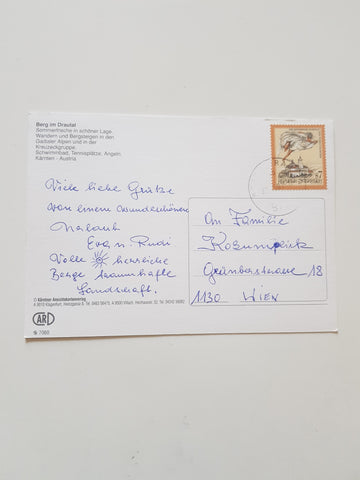 Berg im Drautal
Sommerfrische in schöner Lage.
Wandern und Bergsteigen in den
Gailtaler Alpen und in der
Kreuzeckgruppe.
Schwimmbad, Tennisplätze, Angeln.
Kärnten - Austria
Viele liebe Grüße
von einem wunderschönen
Urlaub
Eva u. Rudi
Volle herrliche
Berge traumhafte
Landschaft.
An Familie
Grünbergstrasse 18
1130 WIEN
REPUBLIK ÖSTERREICH
7
© Kärntner Ansichtskartenverlag
ARI
7080